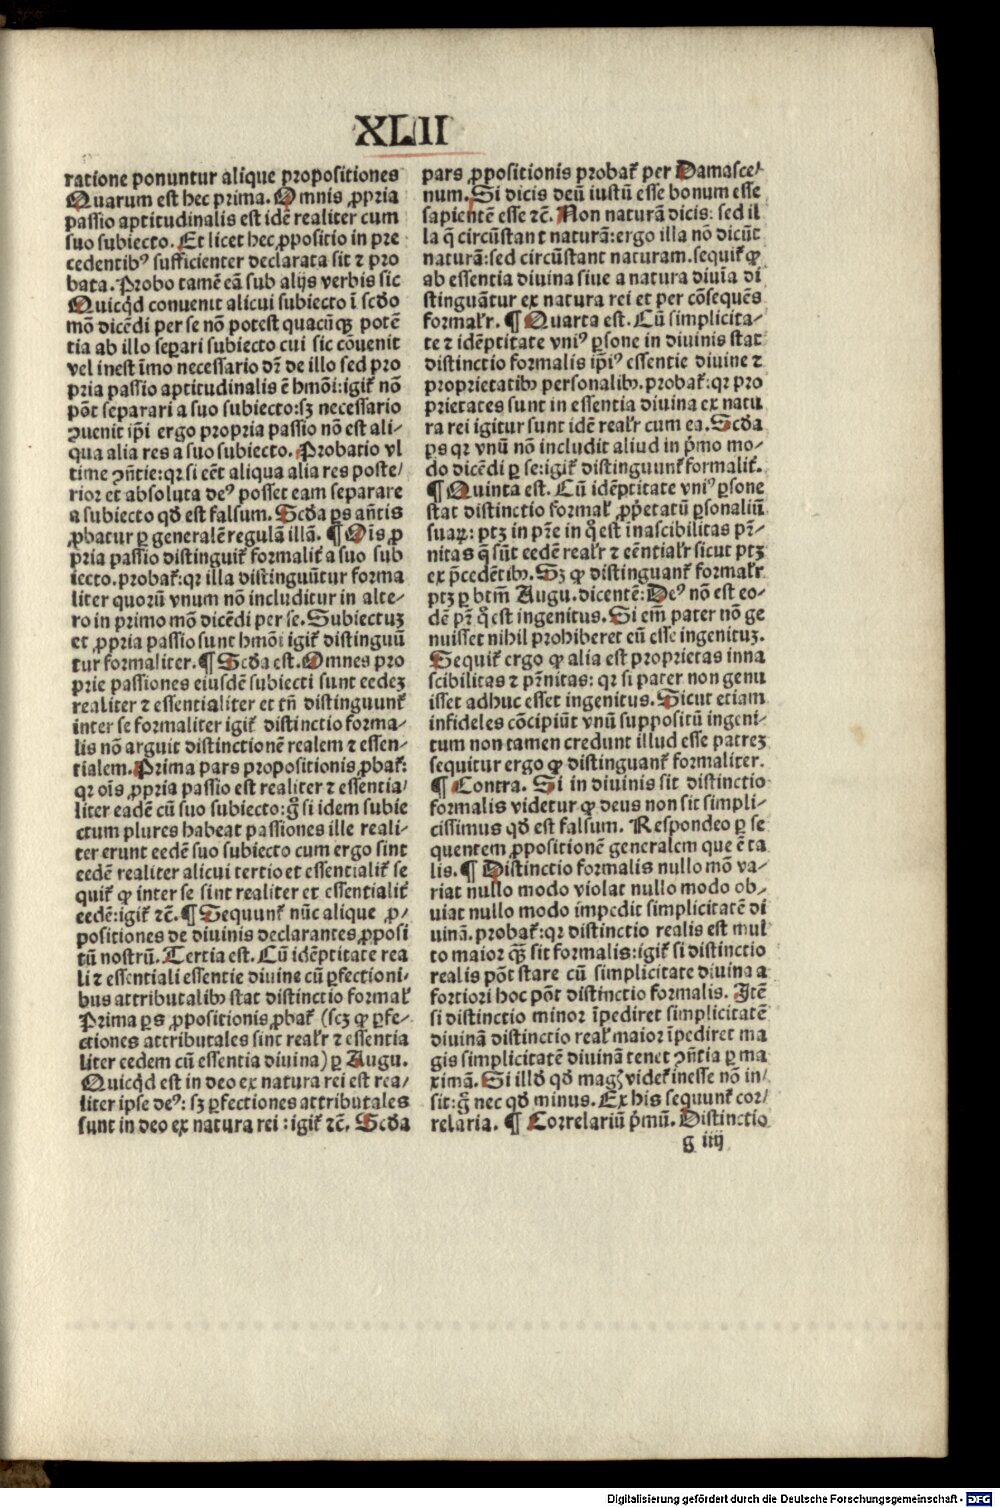 XLII
ratione ponuntur alique propositiones
Quarum est hec prima. Omnis ꝓpria
passio aptitudinalis est idē realiter cum
suo subiecto. Et licet hec ꝓpositio in pre
cedentibꝰ sufficienter declarata sit ⁊ pro
bata. Probo tamē eā sub alijs verbis sic
Quicqͥd conuenit alicui subiecto ī scd̓o
mō dicēdi per se nō potest quacūqꝫ potē
tia ab illo separi subiecto cui sic cōuenit
vel inest īmo necessario dr̄ de illo sed pro
pria passio aptitudinalis ē hmōi: igit᷑ nō
pōt separari a suo subiecto: sꝫ necessario
ꝯuenit ip̄i ergo propria passio nō est ali-
qua alia res a suo subiecto. Probatio vl
time ꝯn̄tie: qr si eēt aliqua alia res poste/
rior et absoluta deꝰ posset eam separare
a subiecto qd̓ est falsum. Scd̓a ꝑs an̄tis
ꝓbatur ꝑ generalē regulā illā. ¶ Oīs ꝓ
pria passio distinguit᷑ formalit᷑ a suo sub
iecto. probat᷑: qr illa distinguūtur forma
liter quorū vnum nō includitur in alte-
ro in primo mō dicēdi per se. Subiectuꝫ
et ꝓpria passio sunt hmōi igit᷑ distinguū
tur formaliter. ¶ Scd̓a est. Omnes pro
prie passiones eiusdē subiecti sunt eedeꝫ
realiter ⁊ essentialiter et tn̄ distinguunt᷑
inter se formaliter igit᷑ distinctio forma-
lis nō arguit distinctionē realem ⁊ essen-
tialem. Prima pars propositionis ꝓbat᷑:
qr oīs ꝓpria passio est realiter ⁊ essentia/
liter eadē cū suo subiecto: gͦ si idem subie
ctum plures habeat passiones ille reali-
ter erunt eedē suo subiecto cum ergo sint
eedē realiter alicui tertio et essentialit᷑ se
quit᷑ ꝙ inter se sint realiter et essentialit᷑
eedē: igit᷑ ⁊c̄. ¶ Sequunt᷑ nūc alique ꝓ-
positiones de diuinis declarantes ꝓposi
tū nostrū. Tertia est. Cū idēptitate rea
li ⁊ essentiali essentie diuine cū ꝑfectioni-
bus attributalibꝫ stat distinctio formal̓
Prima ꝑs ꝓpositionis ꝓbat᷑ (scꝫ ꝙ ꝑfe-
ctiones attributales sint real̓r ⁊ essentia
liter eedem cū essentia diuina) ꝑ Augu.
Quicqͥd est in deo ex natura rei est rea/
liter ipse deꝰ: sꝫ ꝑfectiones attributales
sunt in deo ex natura rei: igit᷑ ⁊c̄. Scd̓a
pars ꝓpositionis probat᷑ per Damasce/
num. Si dicis deū iustū esse bonum esse
sapientē esse ⁊c̄. Non naturā dicis: sed il
la q̄ circūstant naturā: ergo illa nō dicūt
naturā: sed circūstant naturam. sequit᷑ ꝙ
ab essentia diuina siue a natura diuīa di
stinguātur ex natura rei et per cōsequēs
formal̓r. ¶ Quarta est. Cū simplicita-
te ⁊ idēptitate vniꝰ ꝑsone in diuinis stat
distinctio formalis ip̄iꝰ essentie diuine ⁊
proprietatibꝫ personalibꝫ. probat᷑: qr pro
prietates sunt in essentia diuina ex natu
ra rei igitur sunt idē real̓r cum ea. Scd̓a
ꝑs qr vnū nō includit aliud in p̄mo mo-
do dicēdi ꝑ se: igit᷑ distinguunt᷑ formalit᷑.
¶ Quinta est. Cū idēptitate vniꝰ ꝑsone
stat distinctio formal̓ ꝓp̄etatū ꝑsonaliū
suaꝝ: ptꝫ in pr̄e in qͦ est inascibilitas pr̄-
nitas q̄ sūt eedē real̓r ⁊ eēntial̓r sicut ptꝫ
ex p̄cedētibꝫ. Sꝫ ꝙ distinguant᷑ formal̓r
ptꝫ ꝑ btm̄ Augu. dicentē: Deꝰ nō est eo-
dē pr̄ qͦ est ingenitus. Si em̄ pater nō ge
nuisset nihil prohiberet eū esse ingenituꝫ.
Sequit᷑ ergo ꝙ alia est proprietas inna
scibilitas ⁊ pr̄nitas: qr si pater non genu
isset adhuc esset ingenitus. Sicut etiam
infideles cōcipiūt vnū suppositū ingeni-
tum non tamen credunt illud esse patreꝫ
sequitur ergo ꝙ distinguant᷑ formaliter.
¶ Contra. Si in diuinis sit distinctio
formalis videtur ꝙ deus non sit simpli-
cissimus qd̓ est falsum. Respondeo ꝑ se
quentem ꝓpositionē generalem que ē ta
lis. ¶ Distinctio formalis nullo mō va-
riat nullo modo violat nullo modo ob-
uiat nullo modo impedit simplicitatē di
uinā. probat᷑: qr distinctio realis est mul
to maior qꝫ̄ sit formalis: igit᷑ si distinctio
realis pōt stare cū simplicitate diuina a
fortiori hoc pōt distinctio formalis. Itē
si distinctio minor īpediret simplicitatē
diuinā distinctio real̓ maior īpediret ma
gis simplicitatē diuinā tenet ꝯn̄tia ꝑ ma
ximā. Si illd̓ qd̓ magꝭ videt᷑ inesse nō in/
sit: gͦ nec qd̓ minus. Ex his sequunt᷑ cor/
relaria. ¶ Correlariū p̄mū. Distinctio
g iiij
Digitalisierung gefördert durch die Deutsche Forschungsgemeinschaft - DFG